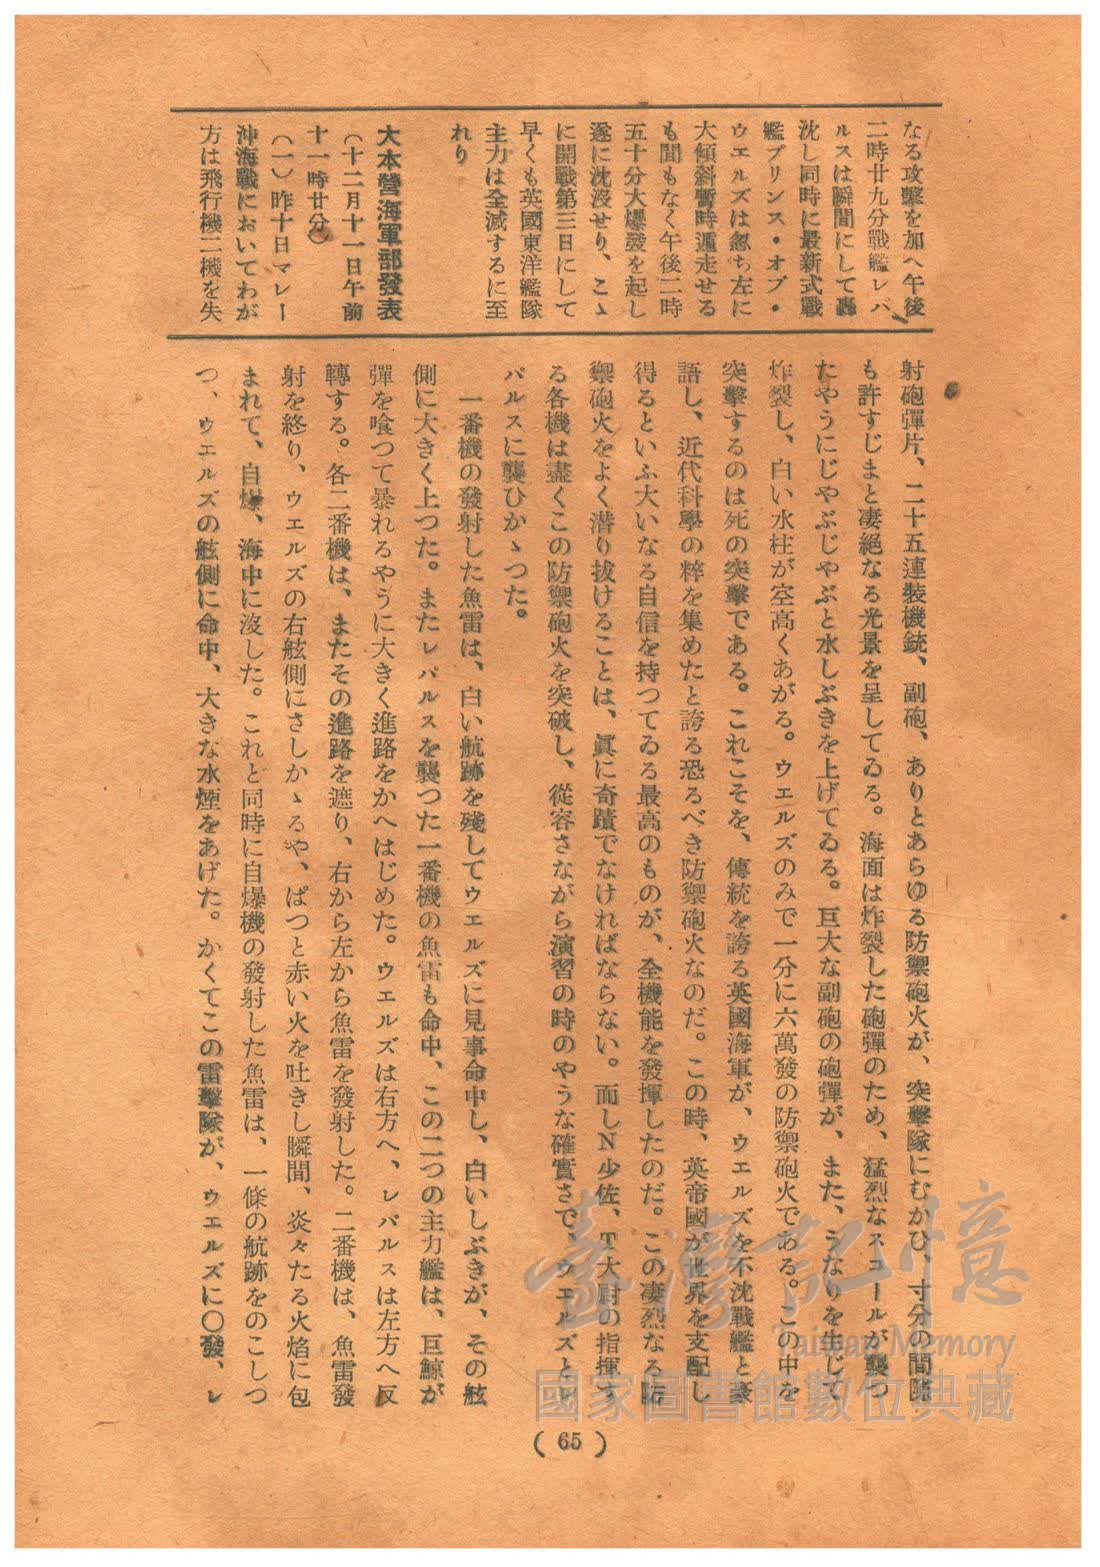 なる攻擊を加へ午後
二時廿九分戰艦レパ
ルスは瞬間にして轟
沈し同時に最新式戰
艦プリンス・オブ・
ウエルズは忽ち左に
大傾斜暫時遁走せる
も間もなく午後二時
五十分大爆發を起し
遂に沈沒せり、こゝ
に開戰第三日にして
早くも英國東洋艦隊
主力は全滅するに至
れり
大本營海軍部發表
（十二月十一日午前
十一時廿分）
（一）昨十日マレー
沖海戰においてわが
方は飛行機二機を失
射砲彈片、二十五連裝機銃、副砲、ありとあらゆる防禦砲火が、突擊隊にむかひ、寸分の間隙
も許すじまと凄絕なる光景を呈してゐる。海面は炸裂した砲彈のため、猛烈なスコールが襲つ
たやうにじやぶじやぶと水しぶきを上げてゐる。巨大な副砲の砲彈が、また、うなりを生じて
炸裂し、白い水柱が空高くあがる。ウエルズのみで一分に六萬發の防禦砲火である。この中を
突擊するのは死の突擊である。これこそを、傳統を誇る英國海軍が、ウエルズを不沈戰艦と豪
語し、近代科學の粹を集めたと誇る恐るべき防禦砲火なのだ。この時、英帝國が世界を支配し
得るといふ大いなる自信を持つてゐる最高のものが、全機能を發揮したのだ。この凄烈なる防
禦砲火をよく潜り拔けることは、眞に奇蹟でなければならない。而しN少佐、T大尉の指揮す
る各機は盡くこの防禦砲火を突破し、從容さながら演習の時のやうな確實さで、ウエルズとレ
パルスに襲ひかゝつた。
一番機の發射した魚雷は、白い航跡を殘してウエルズに見事命中し、白いしぶきが、その舷
側に大きく上つた。またレパルスを襲つた一番機の魚雷も命中、この二つの主力艦は、巨鯨が
彈を喰つて暴れるやうに大きく進路をかへはじめた。ウエルズは右方へ、レパルスは左方へ反
轉する。各二番機は、またその進路を遮り、右から左から魚雷を發射した。二番機は、魚雷發
射を終り、ウエルズの右舷側にさしかゝるや、ぱつと赤い火を吐きし瞬間、炎々たる火焰に包
まれて、自爆、海中に沒した。これと同時に自爆機の發射した魚雷は、一條の航跡をのこしつ
つ、ウエルズの舷側に命中、大きな水煙をあげた。かくてこの雷擊隊が、ウエルズに〇發、レ
( 65 )
臺灣記憶
Taiwan Memory
國家圖書館數位典藏